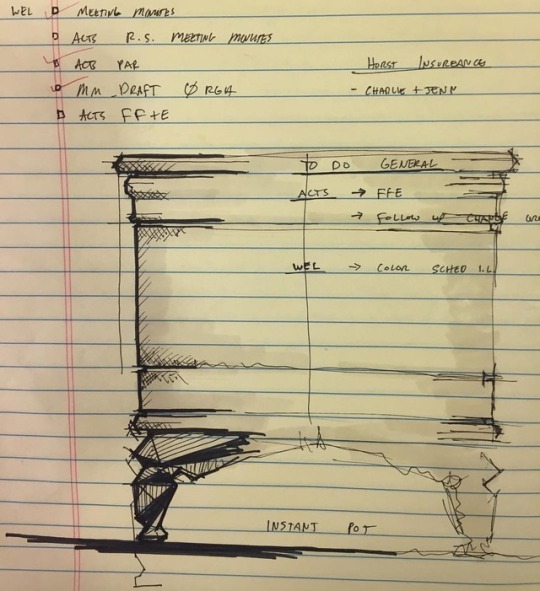 WEL MEETING MINUTES
ACTS R.S. MEETING MINUTES
ACTS PAR
MM_DRAFT Ø RGH
ACTS FF+E
HORST INSUREANCE
- CHARLIE + JENN
TO DO GENERAL
ACTS → FFE
→ FOLLOW UP CHANGE
WEL → COLOR SCHED
INSTANT POT